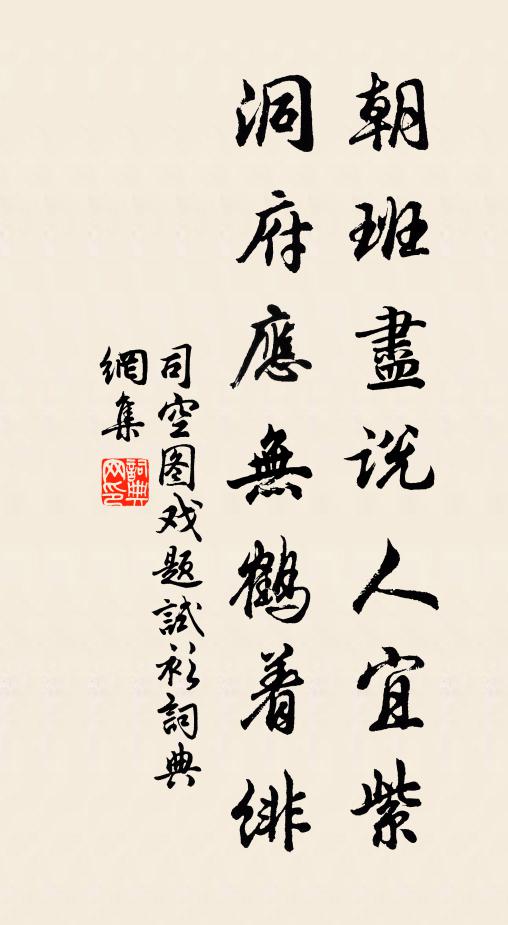 朝班盡説人宜紫
洞府應無鶴着緋
司空图戏题試衫詞典
網集
詞典
网印